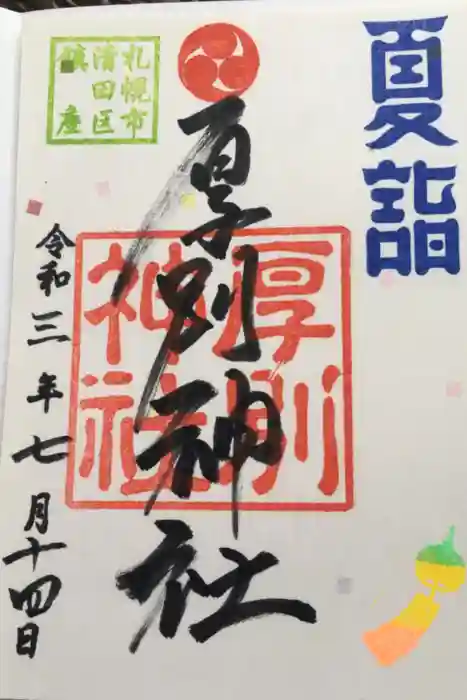 夏詣
厚別神社
厚別
神社
札幌市
清田区
鎮座
令和三年七月十四日